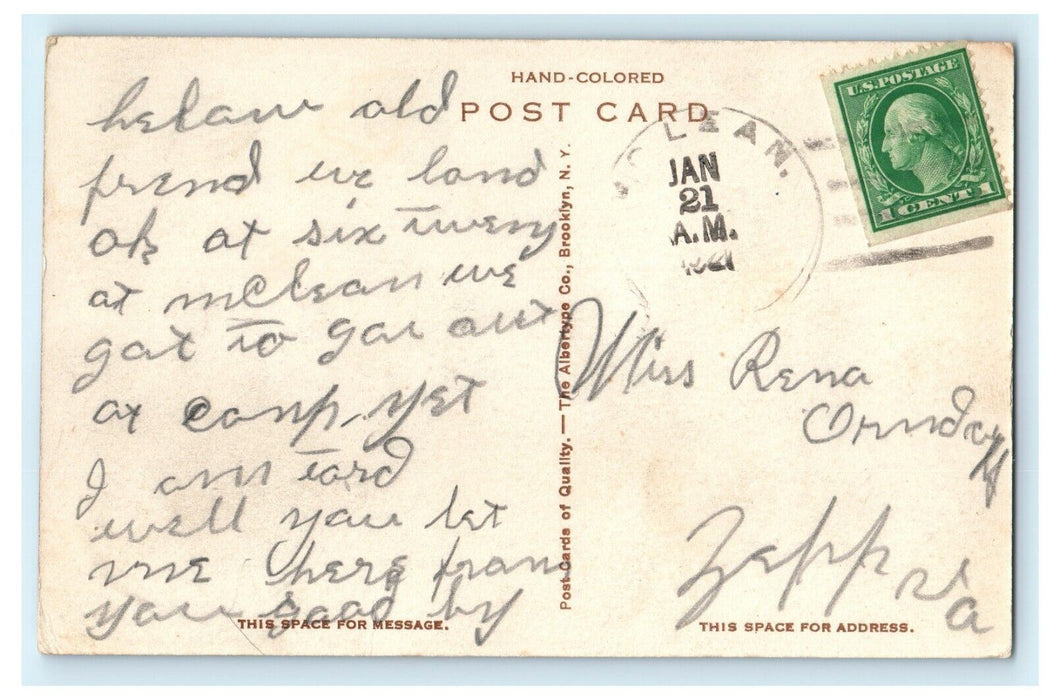 HAND-COLORED
POST CARD
U.S. POSTAGE
1 CENT 1
McLEAN.
JAN
21
A.M.
1921
helaw old
frend we land
ok at six tweny
at mclean we
gat to gou out
at camp, yet
I am tard
well you let
me here fram
you good by
THIS SPACE FOR MESSAGE.
Post Cards of Quality. — The Albertype Co., Brooklyn, N. Y.
Miss Rena
Orndoff
Zepp Va
THIS SPACE FOR ADDRESS.